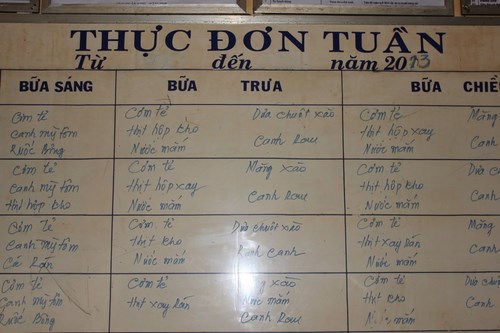 THỰC ĐƠN TUẦN
Từ đến năm 2013
BỮA SÁNG BỮA TRƯA BỮA CHIỀ
Cơm tẻ Cơm tẻ Dưa chuột xào Cơm tẻ Măng
Canh mỳ tôm thịt hộp kho Canh rau thịt hộp xay Canh
Ruốc bông Nước mắm Nước mắm
Cơm tẻ Cơm tẻ Măng xào Cơm tẻ Dưa c
Canh mỳ tôm thịt hộp xay Canh rau thịt hộp kho Canh
thịt hộp kho Nước mắm Nước mắm
Cơm tẻ Cơm tẻ Dưa chuột xào Cơm tẻ Măng
Canh mỳ tôm thịt kho canh thịt xay rán Canh
Cá rán Nước mắm Nước mắm
Cơm tẻ Cơm tẻ xào Cơm tẻ Dưa chu
Canh mỳ tôm thịt xay rán Nước mắm thịt kho Canh
Ruốc bông Canh rau Nước mắm